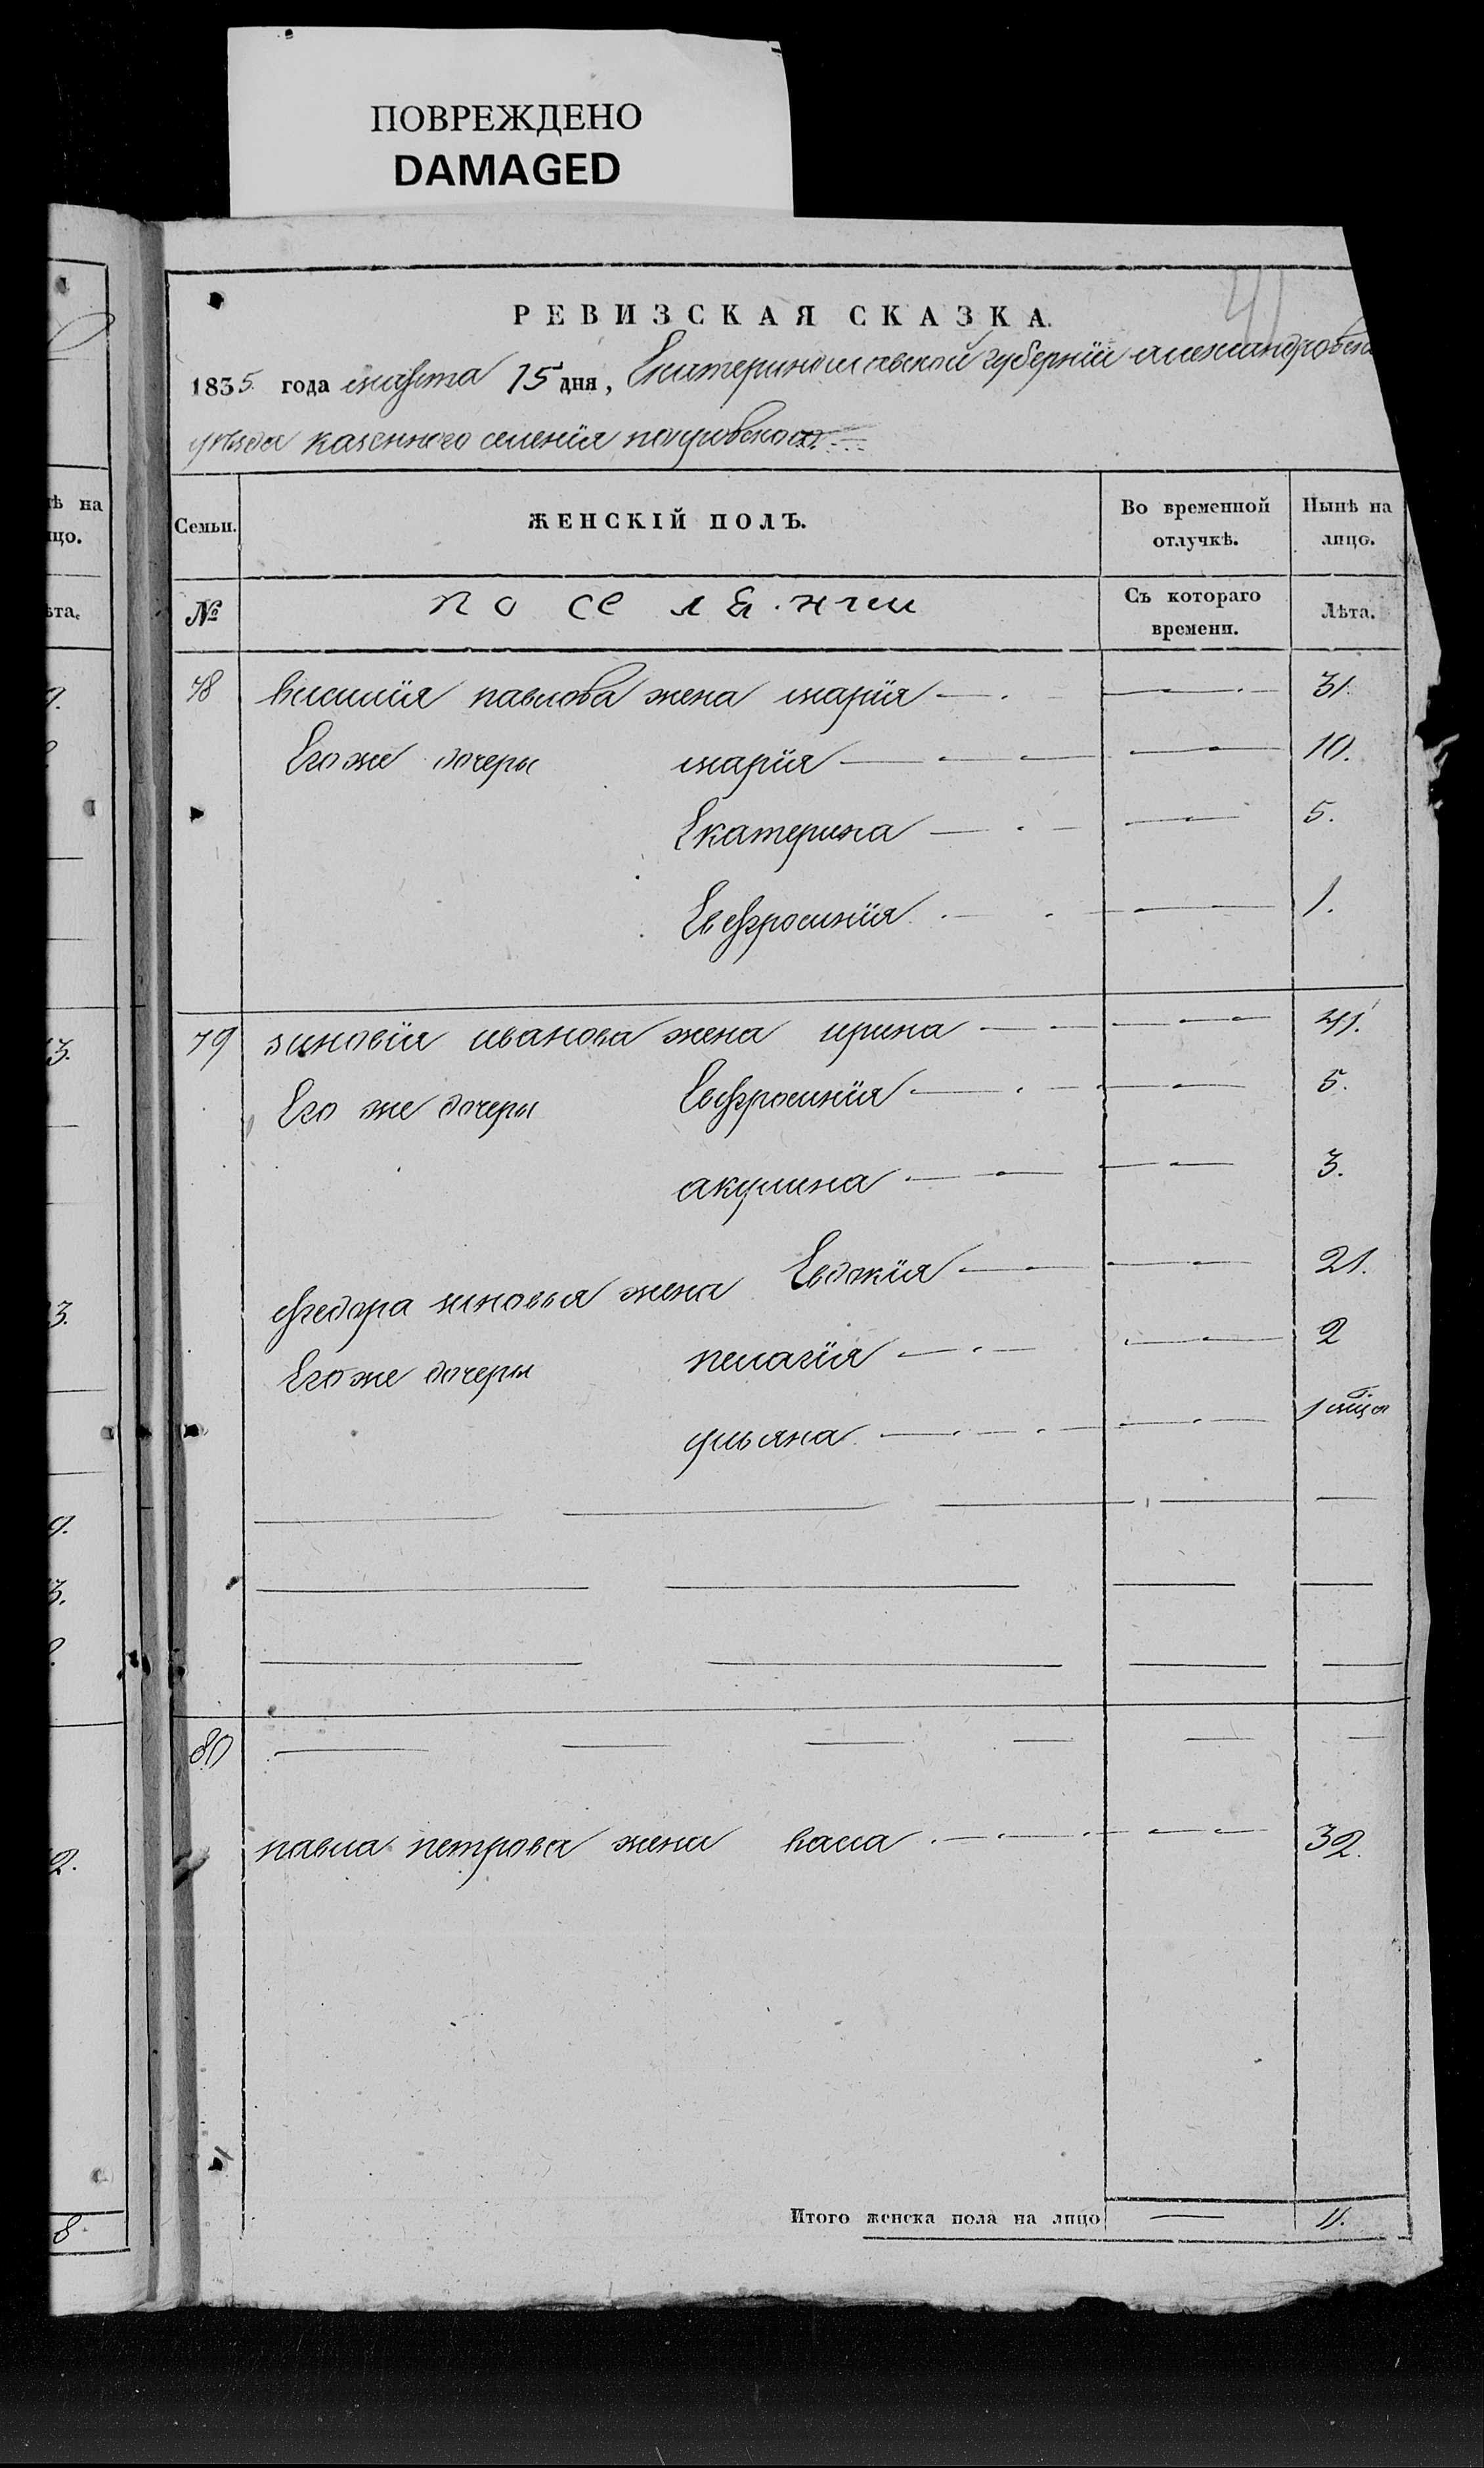 ПОВРЕЖДЕНО
DAMAGED
41
РЕВИЗСКАЯ СКАЗКА.
1835 года марта 15 дня, Екатеринославской губернїи александровска
уѣзда казенного селенїя покровского
Семьи. ЖЕНСКІЙ ПОЛЪ. Во временной отлучкѣ. Нынѣ на лицо.
№ поселѧнки Съ котораго времени. Лѣта.
78 василїя павлова жена марїя 31.
Егоже дочеры марїя 10.
Екатерина 5.
Евфросинїя 1.
79 зиновїя иванова жена ирина 41.
Его же дочеры Евфросинїя 5.
акулина 3.
федора зиновья жена Евдокїя 21.
Егоже дочеры пелагїя 2
ульяна 1 мца
80
павла петрова жена васа 32.
Итого женска пола на лицо 11.
ѣ на
цо.
ѣта.
9.
3.
3.
9.
3.
2.
8.